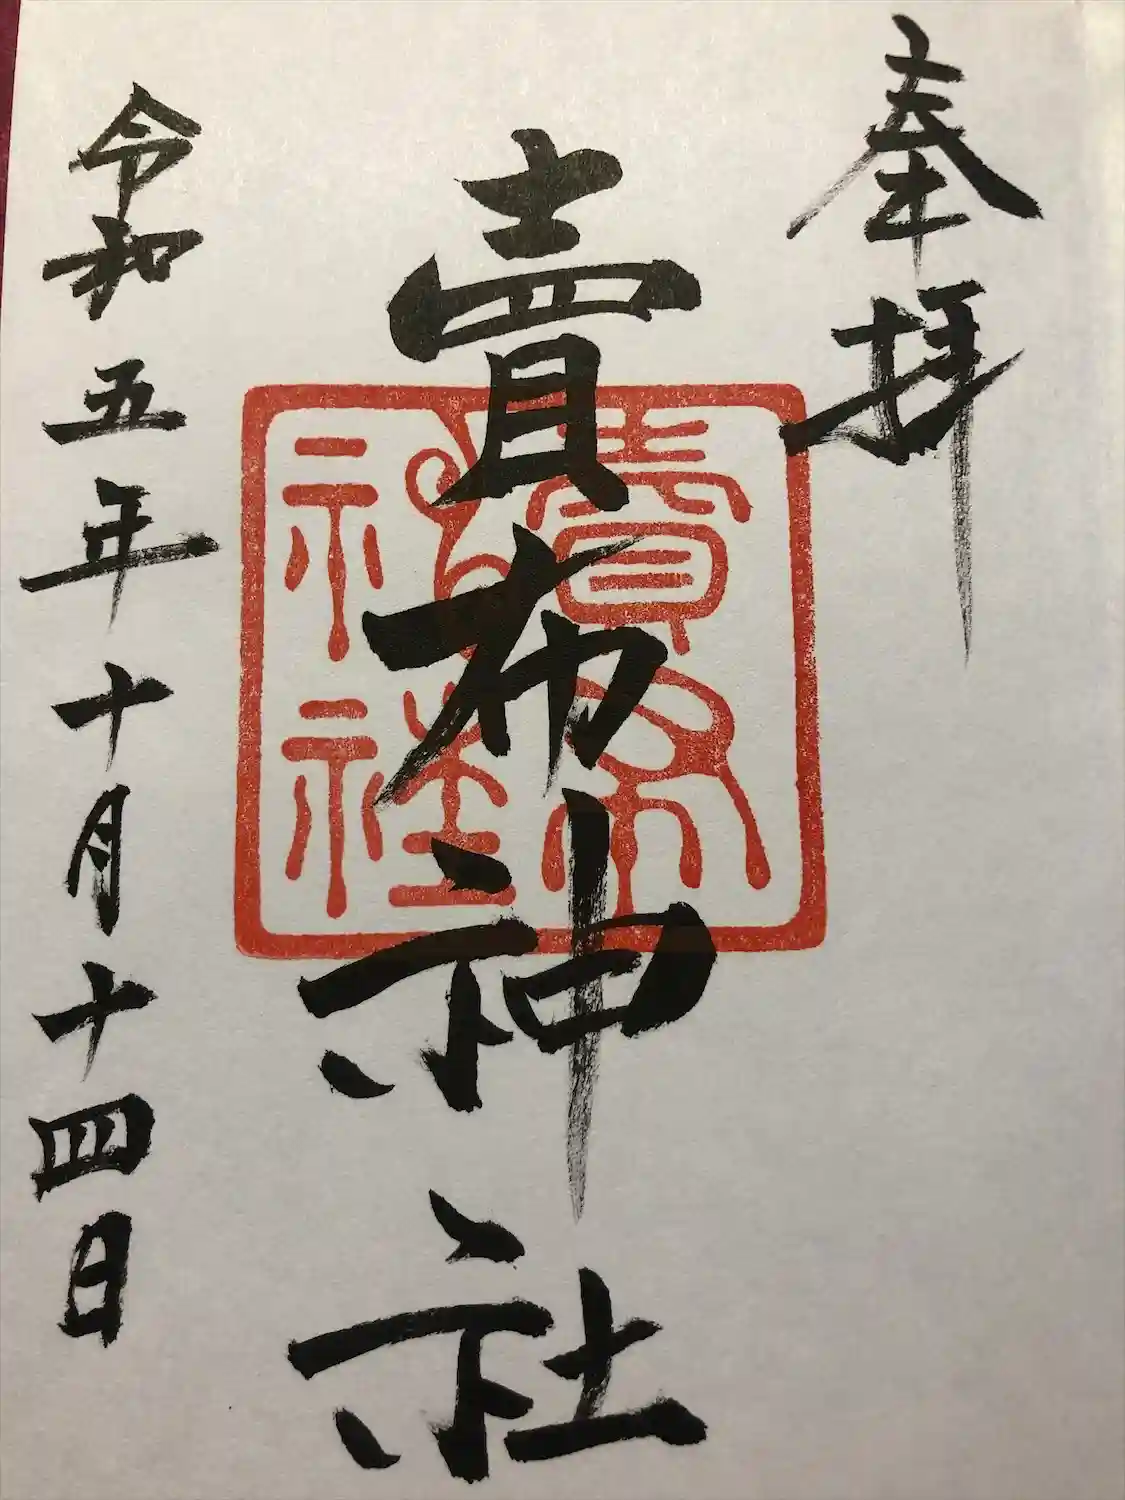 奉拝
賣布神社
賣布
神社
令和五年十月十四日